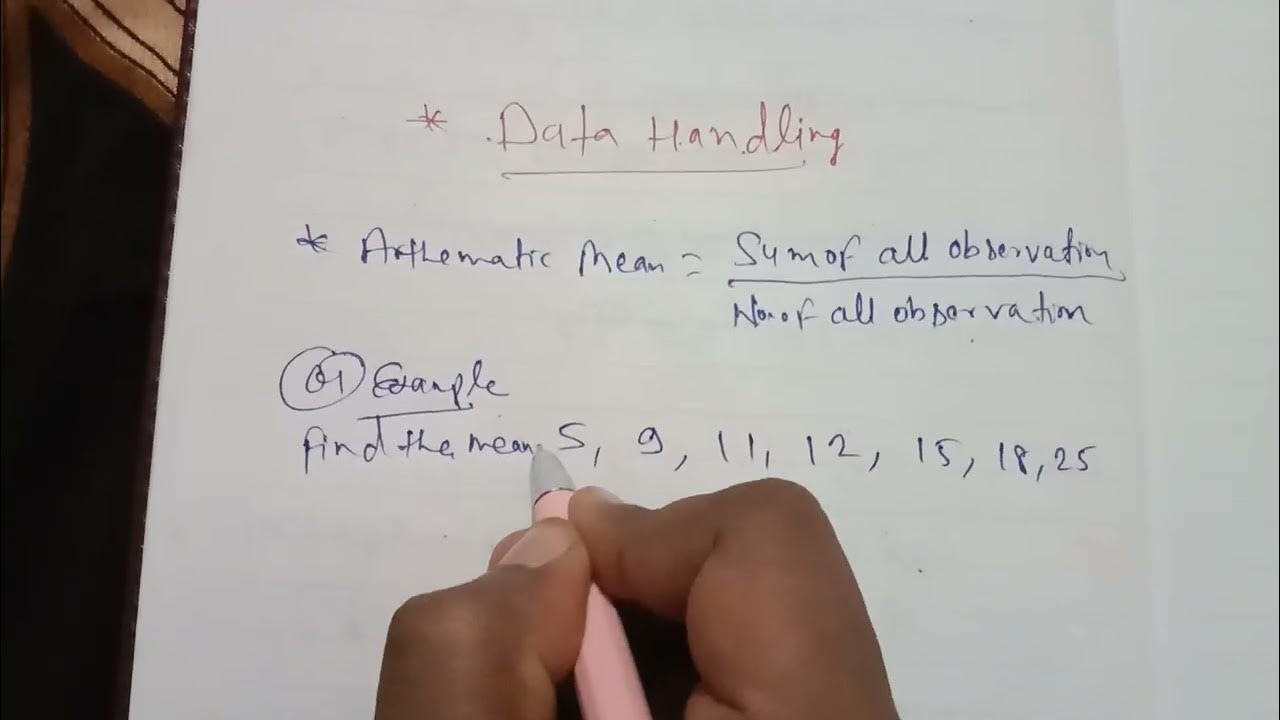 * Data Handling
* Arthematic Mean = Sum of all observation
No. of all observation
01 Example
find the mean 5, 9, 11, 12, 15, 18, 25